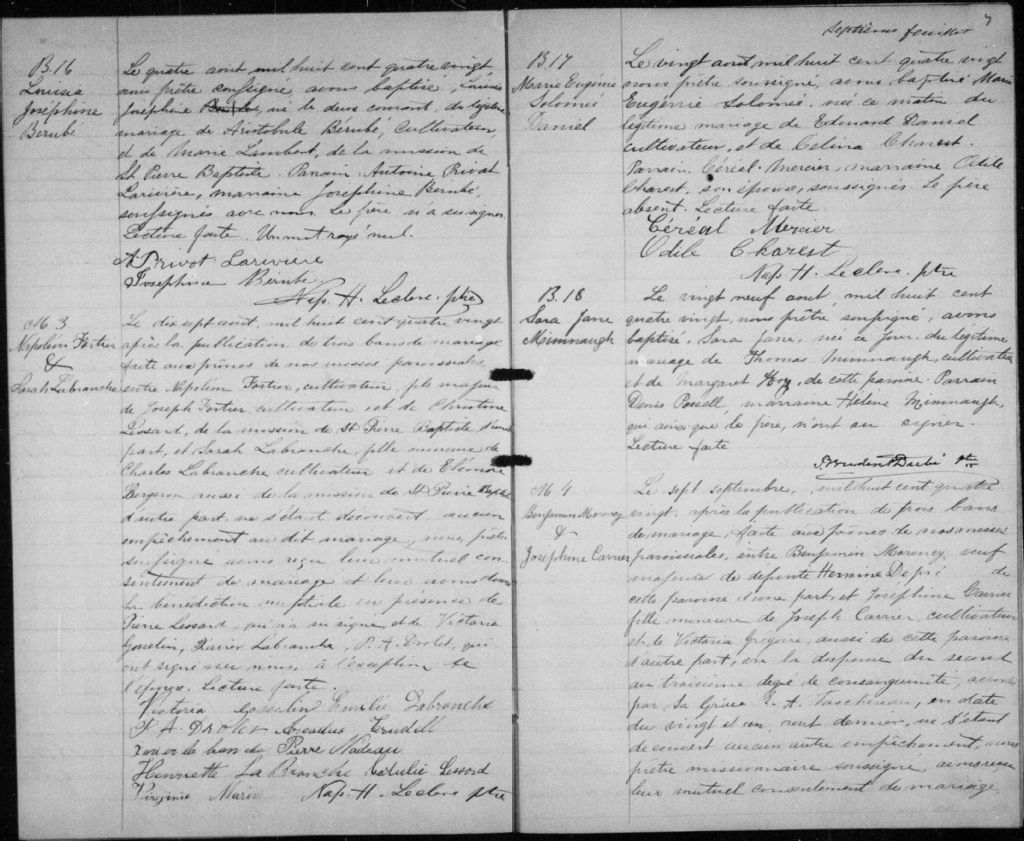 B.16
Louisia
Josephine
Bérubé
Le quatre aout, mil huit cent quatre vingt
nous prêtre soussigné avons baptisé, Louisia
Josephine né le deux courant, du légitime
mariage de Aristobule Bérubé, Cultivateur,
et de Marie Lambert, de la mission de
St Pierre Baptiste. Parrain Antoine Privat
Larivière, marraine Josephine Berubé,
soussignés avec nous. Le père n'a su signer.
Lecture faite. Un mot rayé nul.
A. Privot Lariviere
Josephine Bérubé
Nap. H. Leclerc. ptre
M 3
Napoleon Fortier
&
Sarah Labranche
Le dix sept aout, mil huit cent quatre vingt
après la publication de trois bans de mariage
faite aux prônes de nos messes paroissiales,
entre Napoleon Fortier, cultivateur, fils majeur
de Joseph Fortier, cultivateur et de Christine
Lessard, de la mission de St Pierre Baptiste d'une
part, et Sarah Labranche, fille mineure de
Charles Labranche cultivateur et de Eléonore
Bergeron aussi de la mission de St Pierre Baptiste
d'autre part, ne s'étant découvert aucun
empêchement au dit mariage, nous, prêtre
soussigné avons reçu leur mutuel con
sentement de mariage et leur avons donné
la bénédiction nuptiale en présence de
Pierre Lessard, qui n'a su signer et de Victoria
Gosselin, Xavier Labranche, P. A. Drolet, qui
ont signé avec nous, à l'exception de
l'époux. Lecture faite.
Victoria Gosselin Emilie Labranche
P. A. Drolet Trudell
Pierre Nadeau
Henriette La Branche Lessard
Virginie Marin Nap. H. Leclerc ptre
Septième feuillet 7
B 17
Marie Eugénie
Solomée
Daniel
Le vingt aout, mil huit cent quatre vingt
nous prêtre soussigné, avons baptisé Marie
Eugénie Solomée, née ce matin du
légitime mariage de Edouard Daniel
cultivateur, et de Celina Charest.
Parrain, Céréal Mercier, marraine Odile
Charest, son épouse, soussignés le père
absent. Lecture faite.
Céréal Mercier
Odile Charest
Nap. H. Leclerc. ptre
B. 18
Sara Jane
Mimnaugh
Le vingt neuf aout, mil huit cent
quatre vingt, nous prêtre soussigné, avons
baptisé, Sara Jane, née ce jour, du légitime
mariage de Thomas Mimnaugh, cultivateur
et de Margaret Hoy, de cette paroisse. Parrain
Denis Powell, marraine Hélène Mimnaugh,
qui ainsi que le père, n'ont su signer.
Lecture faite
J. Prudent Dubé ptre
M 4
Benjamin Morency
&
Joséphine Carrier
Le sept septembre, mil huit cent quatre
vingt, après la publication de trois bans
de mariage, faite aux prônes de nos messes
paroissiales, entre Benjamin Morency, veuf
majeur de defunte Hermine de
cette paroisse d'une part et Joséphine Carrier
fille mineure de Joseph Carrier, cultivateur
et de Victoria Gregoire, aussi de cette paroisse
d'autre part, vu la dispense du second
au troisième degré de consanguinité, accordée
par Sa Grâce E. A. Taschereau, en date
du vingt et un aout dernier, ne s'étant
découvert aucun autre empêchement, nous
prêtre missionnaire soussigné, avons reçu
leur mutuel consentement de mariage,